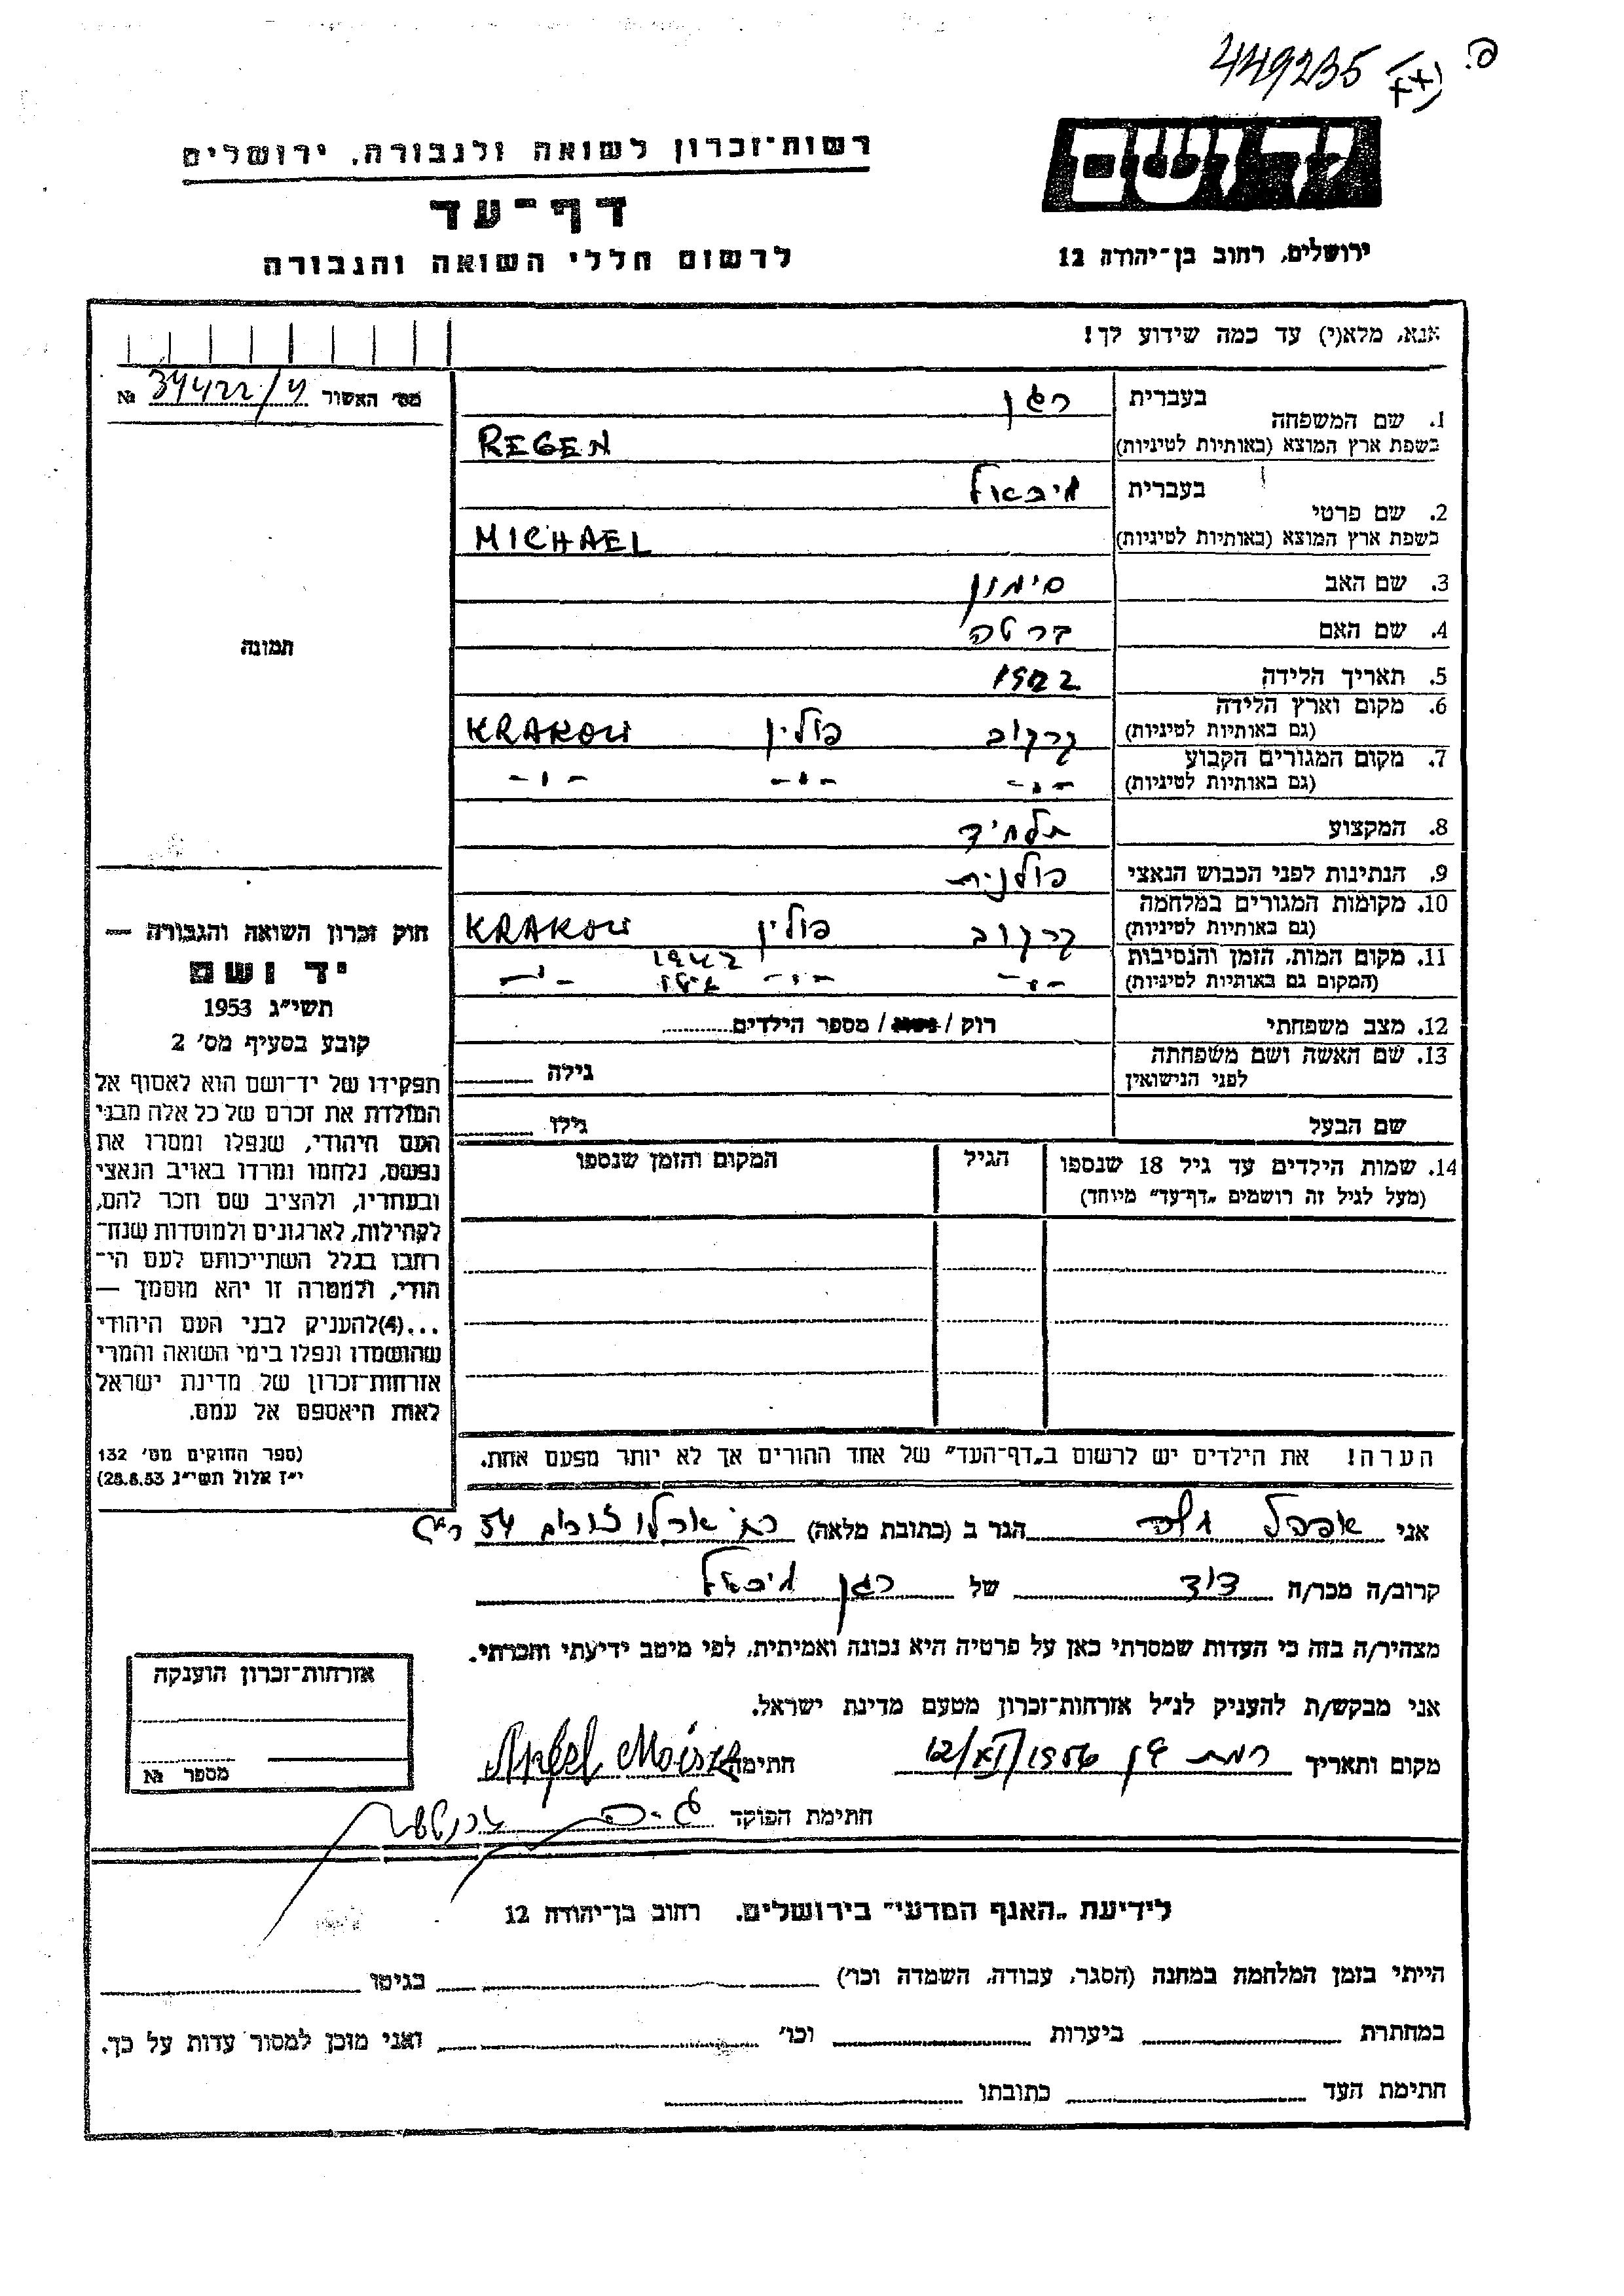 449235
רשות־זכרון לשואה ולגבורה, ירושלים
דף־עד
לרשום חללי השואה והגבורה
יד ושם
ירושלים, רחוב בן־יהודה 12
אנא, מלא(י) עד כמה שידוע לך!
מס' האשור 34422/ №
תמונה
1. שם המשפחה בעברית רגן
בשפת ארץ המוצא (באותיות לטיניות) REGEN
2. שם פרטי בעברית מיכאל
בשפת ארץ המוצא (באותיות לטיניות) MICHAEL
3. שם האב סימון
4. שם האם ברטה
5. תאריך הלידה 1922
6. מקום וארץ הלידה (גם באותיות לטיניות) קרקוב פולין KRAKOW
7. מקום המגורים הקבוע (גם באותיות לטיניות) -"- -"- -"-
8. המקצוע תלמיד
9. הנתינות לפני הכבוש הנאצי פולנית
10. מקומות המגורים במלחמה (גם באותיות לטיניות) קרקוב פולין KRAKOW
11. מקום המות, הזמן והנסיבות (המקום גם באותיות לטיניות) -"- -"- 1942 -"-
12. מצב משפחתי רוק / נשוי / מספר הילדים
13. שם האשה ושם משפחתה לפני הנישואין גילה
שם הבעל גילו
14. שמות הילדים עד גיל 18 שנספו (מעל לגיל זה רושמים „דף־עד” מיוחד) הגיל המקום והזמן שנספו
הערה! את הילדים יש לרשום ב„דף־העד” של אחד ההורים אך לא יותר מפעם אחת.
חוק זכרון השואה והגבורה —
יד ושם
תשי״ג 1953
קובע בסעיף מס' 2
תפקידו של יד־ושם הוא לאסוף אל
המולדת את זכרם של כל אלה מבני
העם היהודי, שנפלו ומסרו את
נפשם, נלחמו ומרדו באויב הנאצי
ובעוזריו, ולהציב שם וזכר להם,
לקהילות, לארגונים ולמוסדות שנח־
רבו בגלל השתייכותם לעם הי־
הודי, ולמטרה זו יהא מוסמך —
...(4) להעניק לבני העם היהודי
שהושמדו ונפלו בימי השואה והמרי
אזרחות־זכרון של מדינת ישראל
לאות היאספם אל עמם.
(ספר החוקים מס' 132
י״ז אלול תשי״ג 28.8.53)
אני אפפל הגר ב (כתובת מלאה) רח' ארלוזורוב 54 ר״ג
קרוב/ה מכר/ה דוד של רגן מיכאל
מצהיר/ה בזה כי העדות שמסרתי כאן על פרטיה היא נכונה ואמיתית, לפי מיטב ידיעתי והכרתי.
אני מבקש/ת להעניק לנ״ל אזרחות־זכרון מטעם מדינת ישראל.
מקום ותאריך רמת גן 12/XI/1956 חתימה Apfel
חתימת הפוקד
אזרחות־זכרון הוענקה
מספר №
לידיעת „האגף המדעי” בירושלים, רחוב בן־יהודה 12
הייתי בזמן המלחמה במחנה (הסגר, עבודה, השמדה וכו') בגיטו
במחתרת ביערות וכו' ואני מוכן למסור עדות על כך.
חתימת העד כתובתו